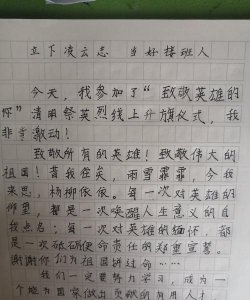 立下凌云志 当好接班人
今天，我参加了“致敬英雄的
你”清明祭英烈线上升旗仪式，我
非常激动！
致敬所有的英雄！致敬伟大的
祖国！昔我往矣，雨雪霏霏，今我
来思，杨柳依依。每一次对英雄的
仰望，都是一次唤醒人生意义的自
我点名；每一次对英雄的缅怀，都
是一次砥砺使命责任的郑重宣誓。
谢谢你们为祖国拼过命……
我们一定要努力学习，成为一
个能为国家做出贡献的有用人才